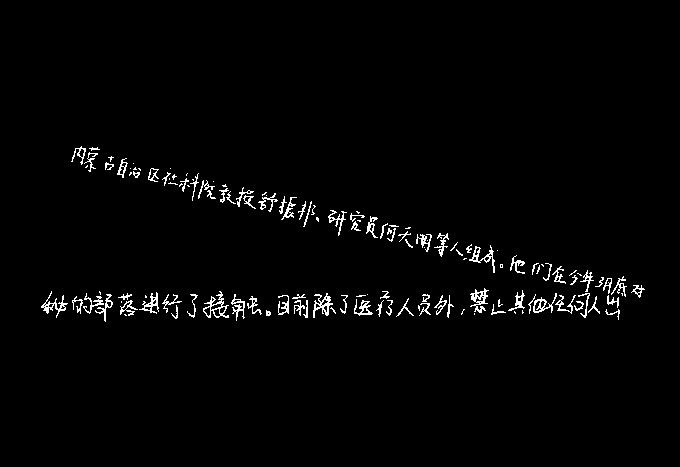 内蒙古自治区社科院教授舒振邦、研究员何天明等人组成。他们在今年3月底对
秘的部落进行了接触。目前除了医疗人员外，禁止其他任何人出